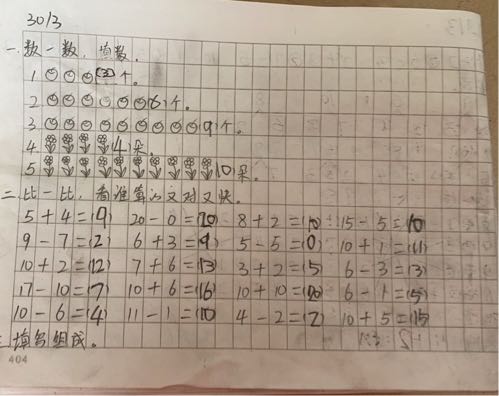 30/3
一.数一数,填数。
1 (3)个。
2 (6)个。
3 (9)个。
4 (4)朵。
5 (10)朵。
二.比一比,看谁算的又对又快。
5+4=(9) 20-0=(20) 8+2=(10) 15-5=(10)
9-7=(2) 6+3=(9) 5-5=(0) 10+1=(11)
10+2=(12) 7+6=(13) 3+2=(5) 6-3=(3)
17-10=(7) 10+6=(16) 10+10=(20) 6-1=(5)
10-6=(4) 11-1=(10) 4-2=(2) 10+5=(15)
三.填组成。
404